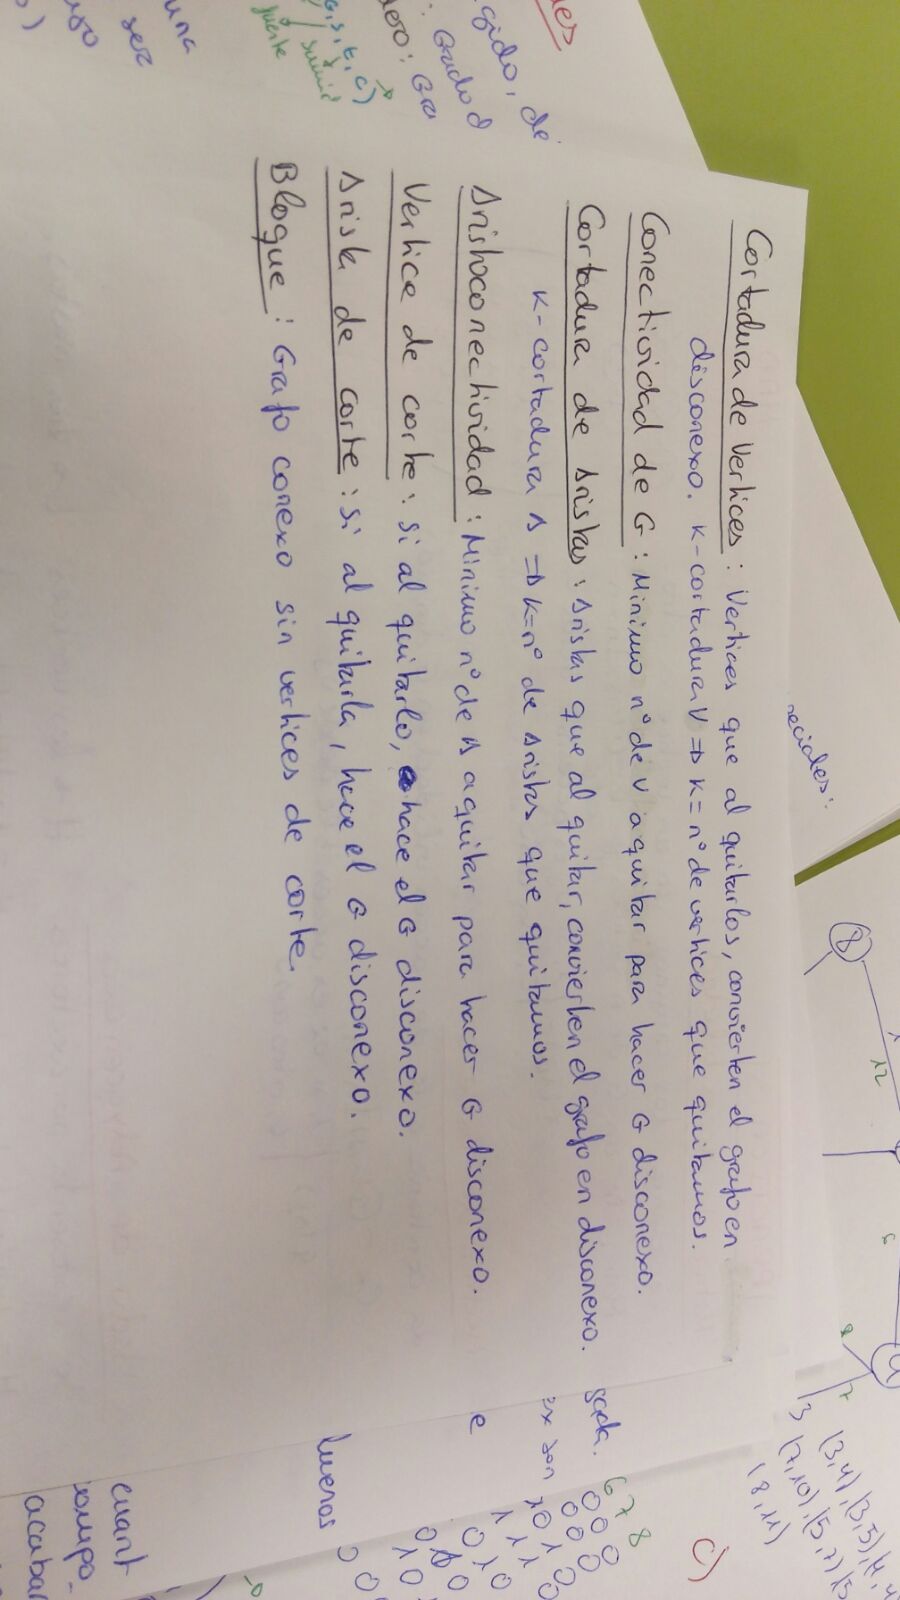 Cortadura de Vertices: Vertices que al quitarlos, convierten el grafo en
disconexo. K-cortadura V => K = nº de vertices que quitamos.
Conectividad de G: Minimo nº de V a quitar para hacer G disconexo.
Cortadura de Aristas: Aristas que al quitar, convierten el grafo en disconexo.
K-cortadura A => K=nº de Aristas que quitamos.
Aristoconectividad: Minimo nº de A a quitar para hacer G disconexo.
Vertice de corte: si al quitarlo, hace el G disconexo.
Arista de corte: si al quitarla, hace el G disconexo.
Bloque: Grafo conexo sin vertices de corte.
reciales:
8
12
6
8
7
3
(3,4), (3,5), (4,4
(7,10), (5,7) (5
(8,11)
c)
6 7 8
0 0 0
0 0 0
1 0 1 0
1 1 1 0
0 1 0
son
e
buenos
cuant
compo
acabar
es
gido, de
: Grado d
: Gra
G, s, t, c)
sumid
fuente
una
ser